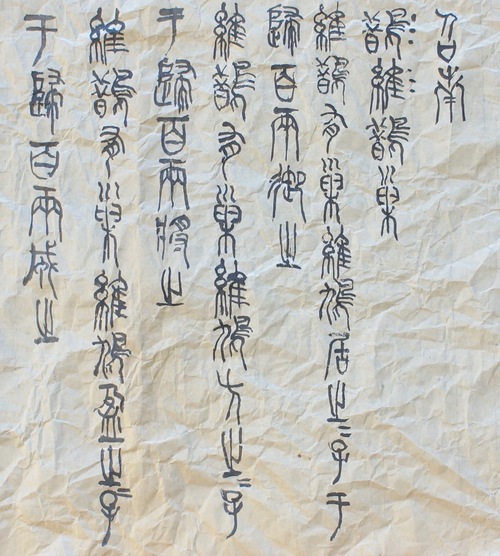 召南
鵲維鵲巢
維鵲有巢維鳩居之=子于
歸百兩御之
維鵲有巢維鳩方之=子
于歸百兩將之
維鵲有巢維鳩盈之=子
于歸百兩成之